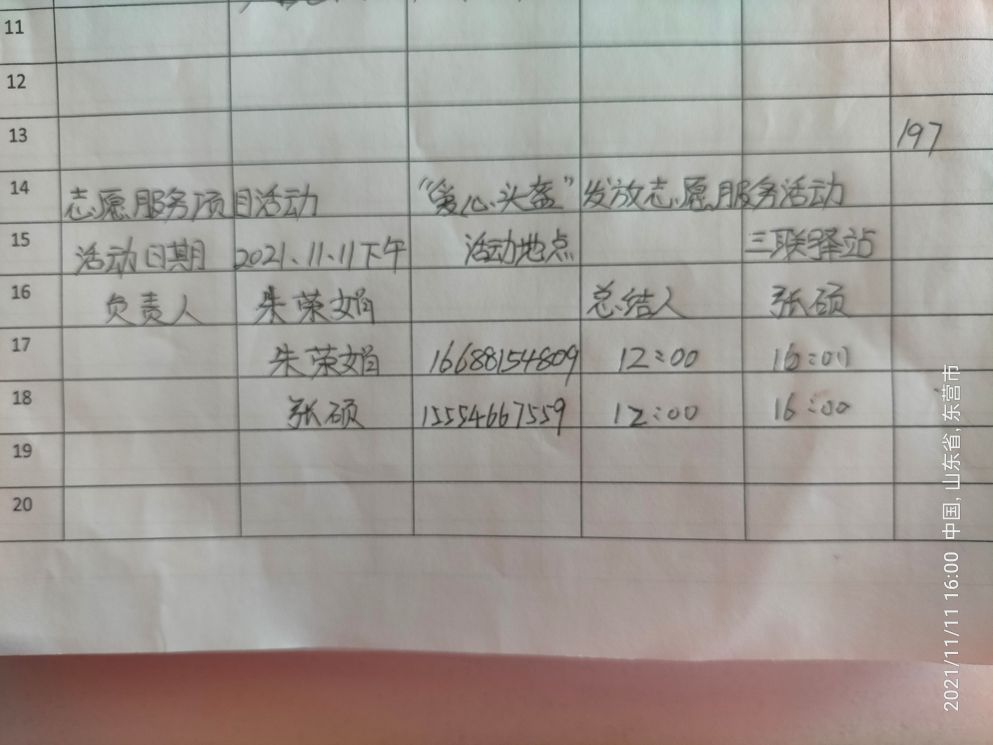 11
12
13 197
14 志愿服务项目活动 “爱心头盔”发放志愿服务活动
15 活动日期 2021.11.11下午 活动地点 三联驿站
16 负责人 朱荣娟 总结人 张硕
17 朱荣娟 16688154809 12:00 16:00
18 张硕 15554667559 12:00 16:00
19
20
2021/11/11 16:00 中国, 山东省, 东营市